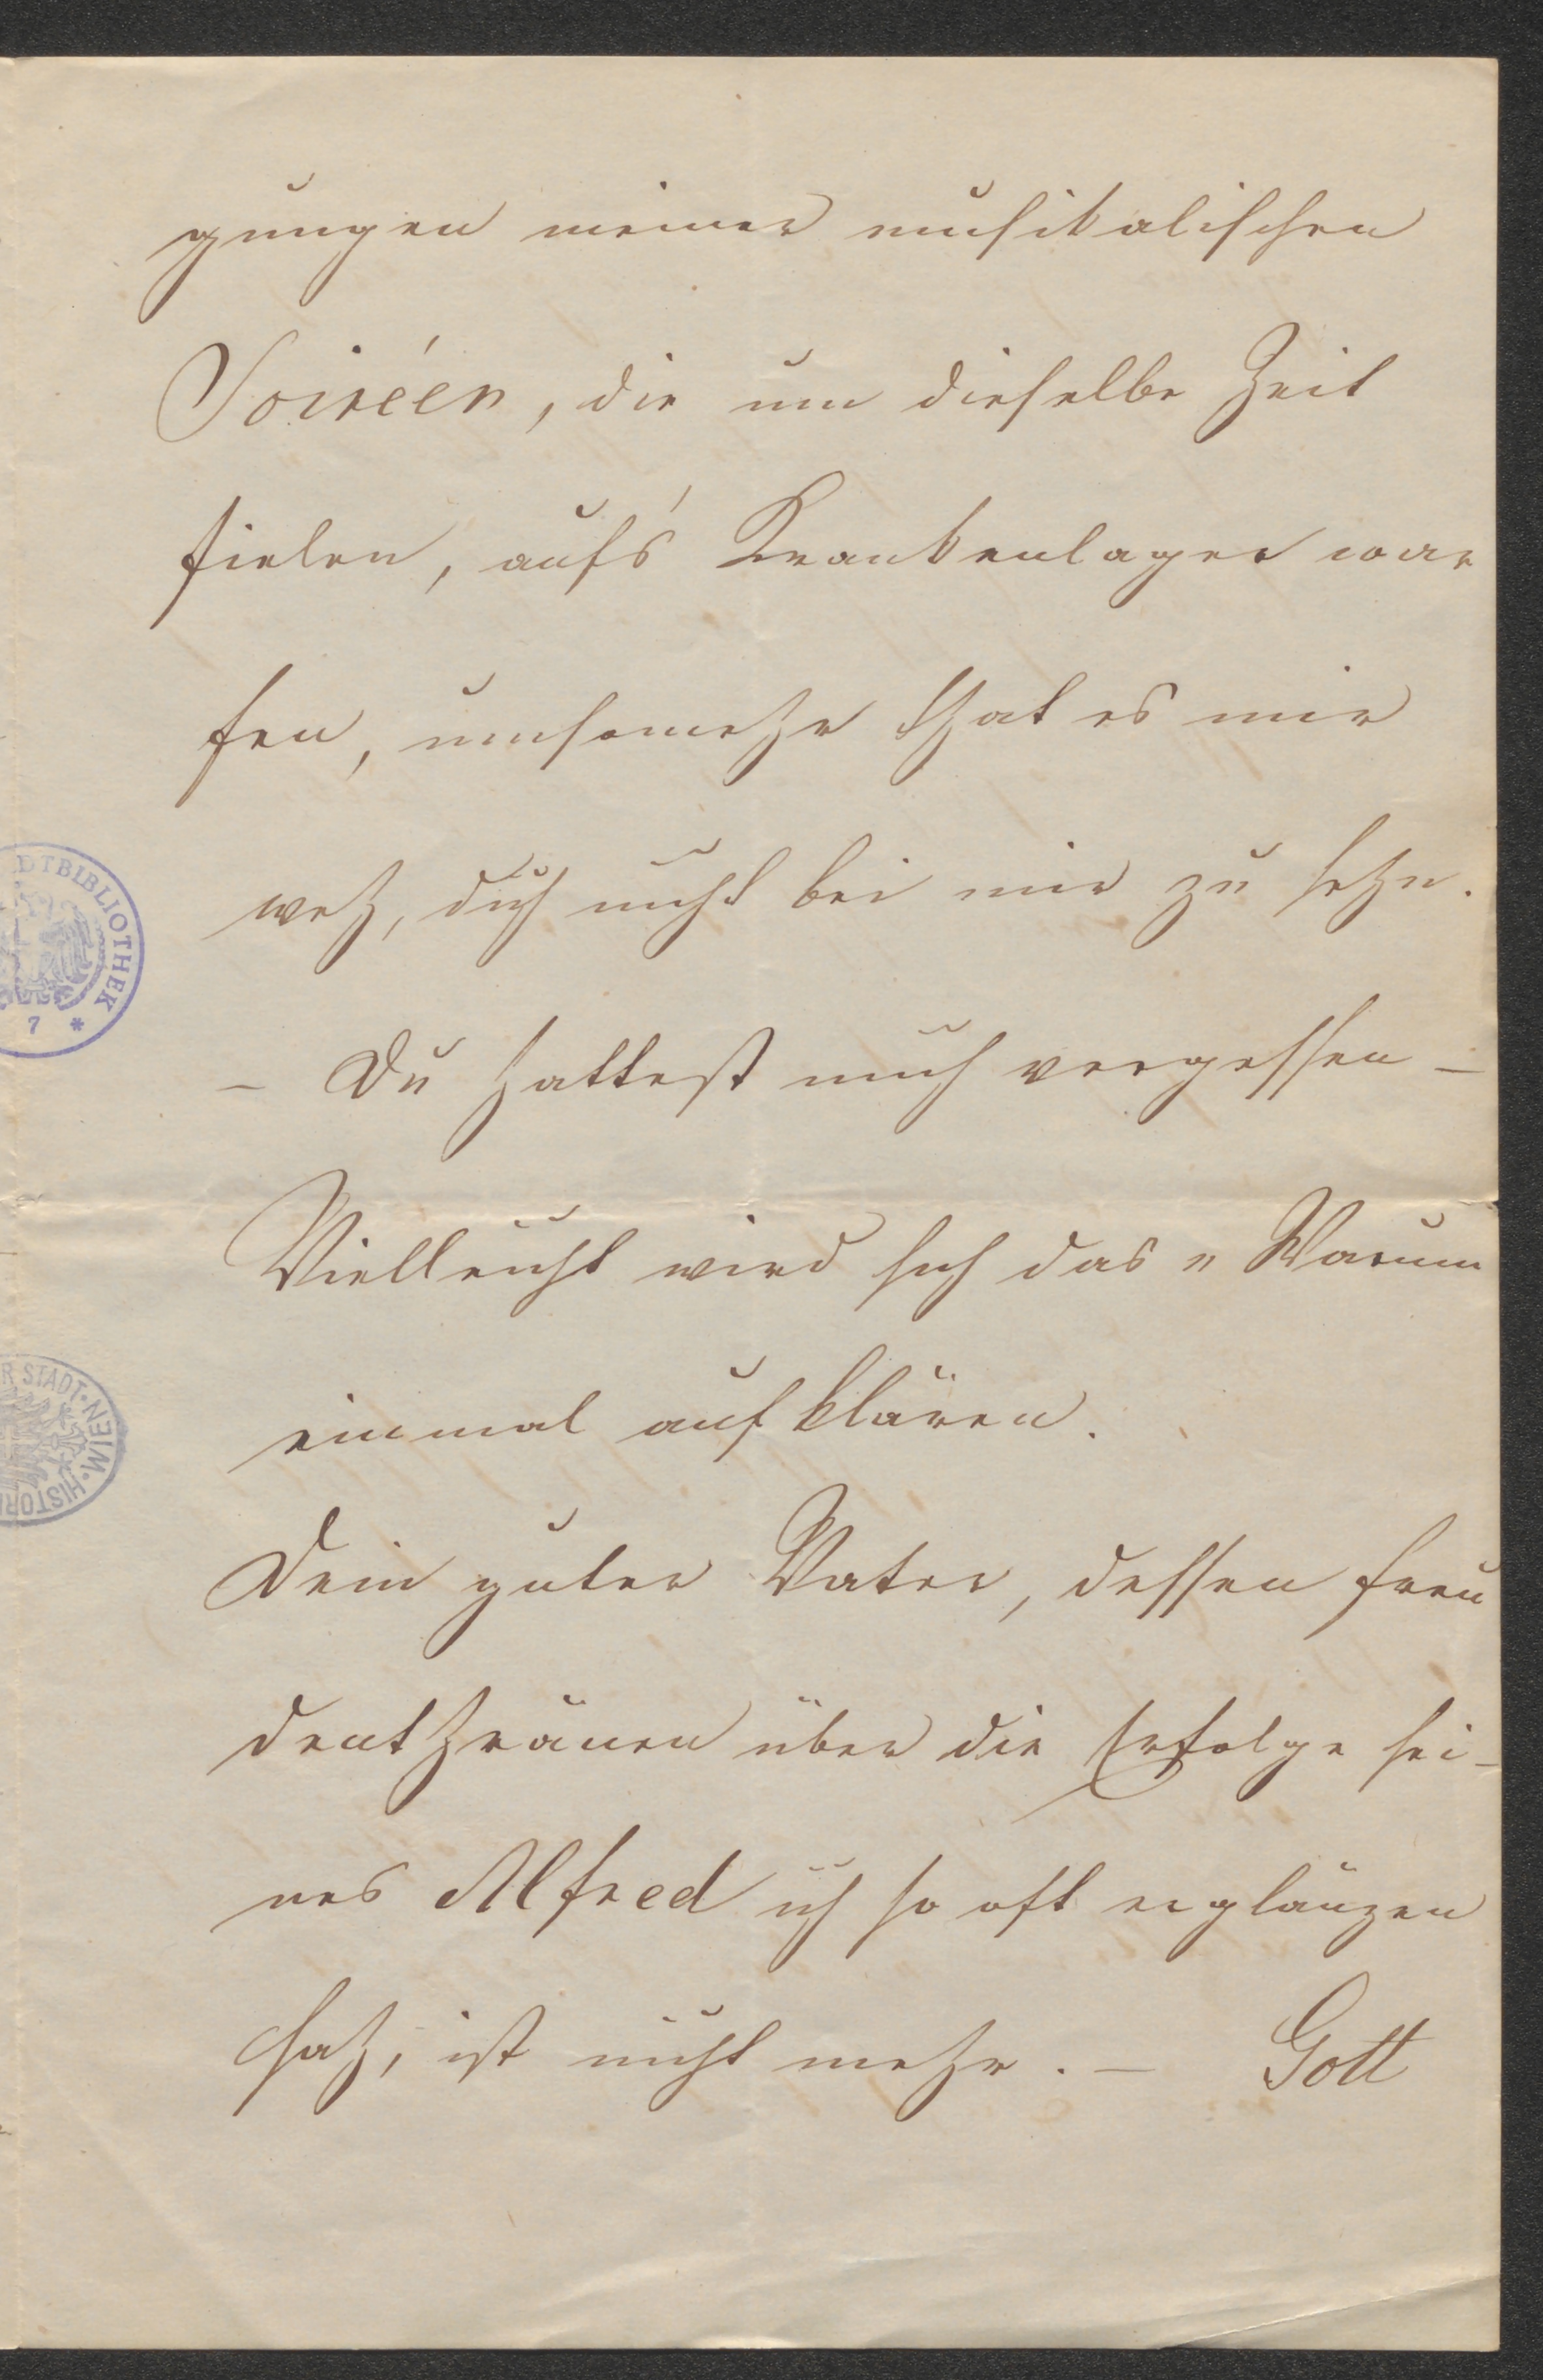 gungen meiner musikalischen
Soiréen, die um dieselbe Zeit
fielen, auf's Krankenlager war
fen, umsomehr that es mir
weh, dich nicht bei mir zu sehn.
– Du hattest mich vergessen –
Vielleicht wird sich das „Warum
einmal aufklären.
Dein guter Vater, dessen Freu
denthränen über die Erfolge sei-
nes Alfred ich so oft erglänzen
sah, ist nicht mehr. – Gott
DTBIBLIOTHEK
7 *
R STADT · WIEN · HISTORI